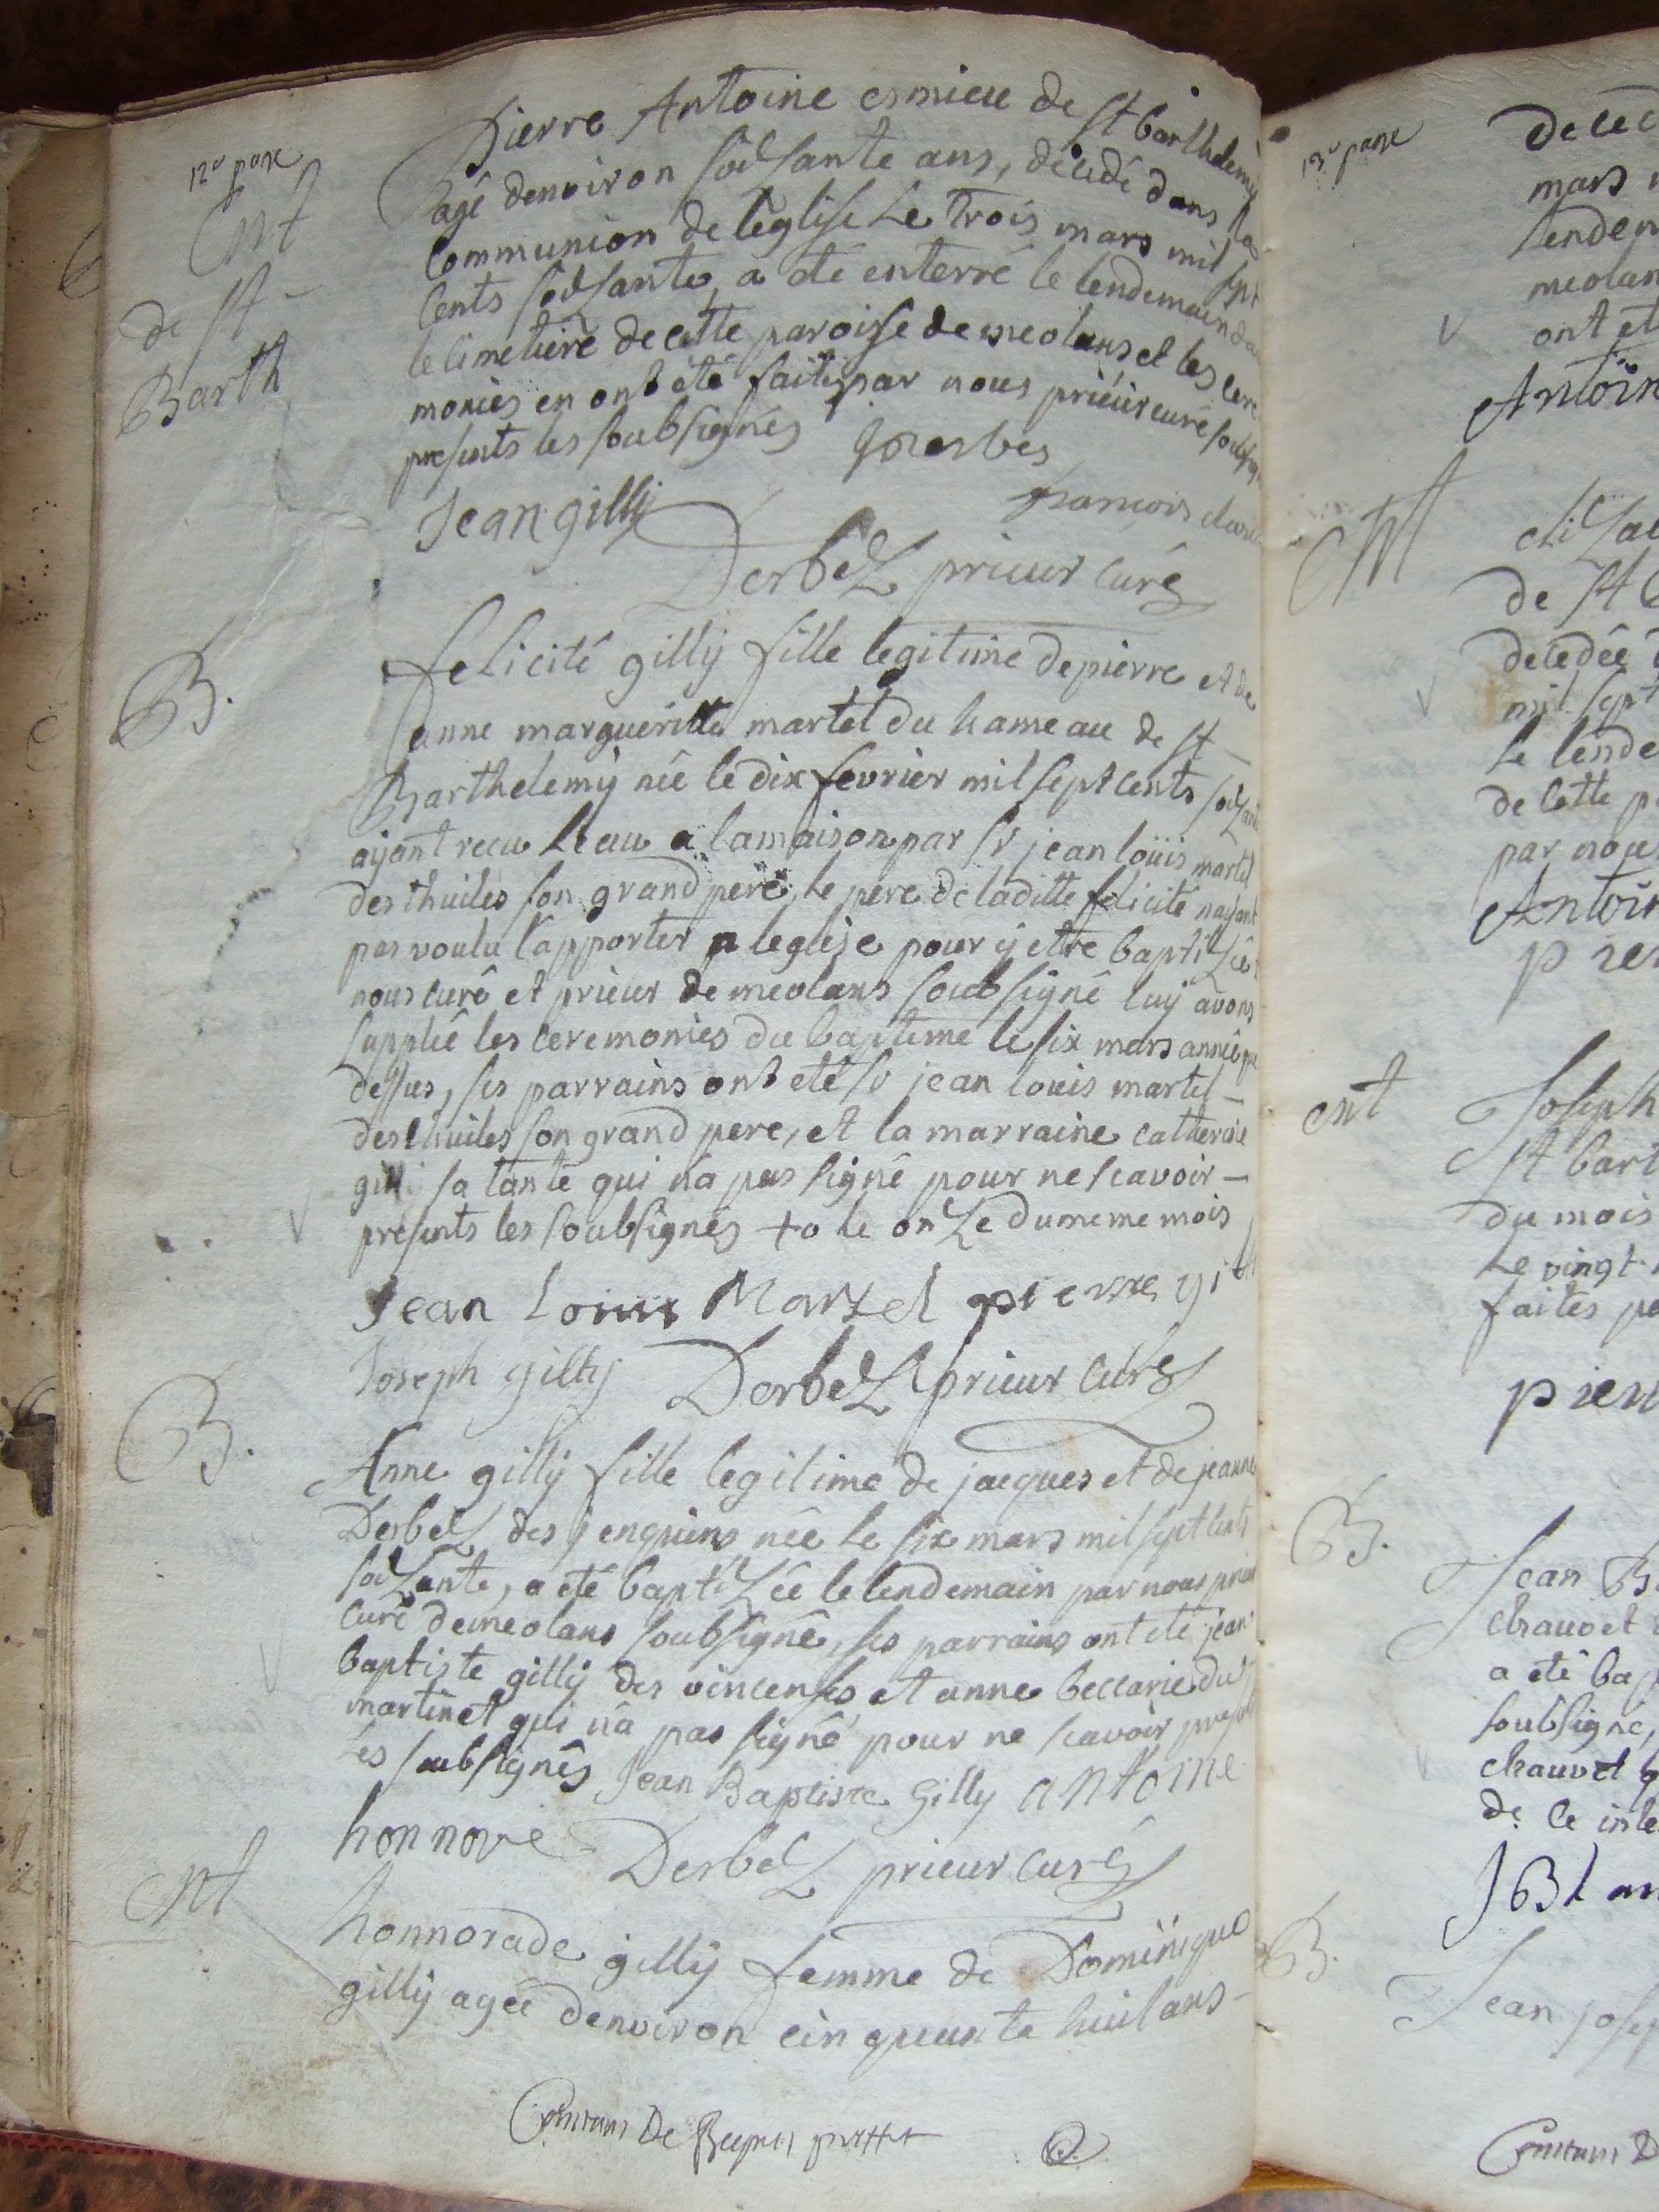 12e page
Pierre Antoine esmieu de St barthelemy
agé denviron soiZante ans, décédé dans la
Communion de léglise Le trois mars mil sept
Cents soiZante, a été enterré le lendemain da
le Cimetiere de cette paroisse de meolans et les cere
monies en ont été faites par nous prieur curé soubsig
presents les soubsignés
mt
de St
Barth
Jean gilly
françois
DerbeZ prieur curé
B.
felicité gillÿ fille legitime de pierre et de
anne marguéritte martel du hameau de St
Barthelemÿ née le dix fevrier mil sept cents soiZante
aÿant recu leau a la maison par Sr jean loüis martel
des thuiles son grand pere, le pere de laditte felicité naÿant
pas voulu l'apporter a leglise pour ÿ etre baptiZée
nous curé et prieur de meolans soubsigné luÿ avons
supplée les ceremonies du baptême le six mars année que
dessus, ses parrains ont eté Sr jean louis martel
des thuiles son grand pere, et la marraine catherine
gilli sa tante qui na pas signé pour ne scavoir
presents les soubsignés + o le onZe du meme mois
Jean Louis Martel pierre gilli
Joseph gilly DerbeZ prieur curé
B.
Anne gillÿ fille legitime de jacques et de jeanne
DerbeZ des jenquins née le six mars mil sept cents
soiZante, a été baptiZée le lendemain par nous prieur
curé de meolans soubsigné, ses parrains ont eté jean
baptiste gillÿ des vincenses et anne beccarie du
martinet qui na pas signé pour ne scavoir presents
les soubsignés Jean Baptiste Gilly antoine
honnore DerbeZ prieur curé
mt
honnorade gillÿ femme de Dominique
gillÿ agée denviron cinquante huit ans
13e page
mars
mt
de St
decedée
mil sept
Le lende
de Cette
par nous
mt
Joseph
St bart
du mois
Le vingt
faites
B.
Jean
chauvet
a eté bap
soubsigné,
chauvet
B.
Jean josep